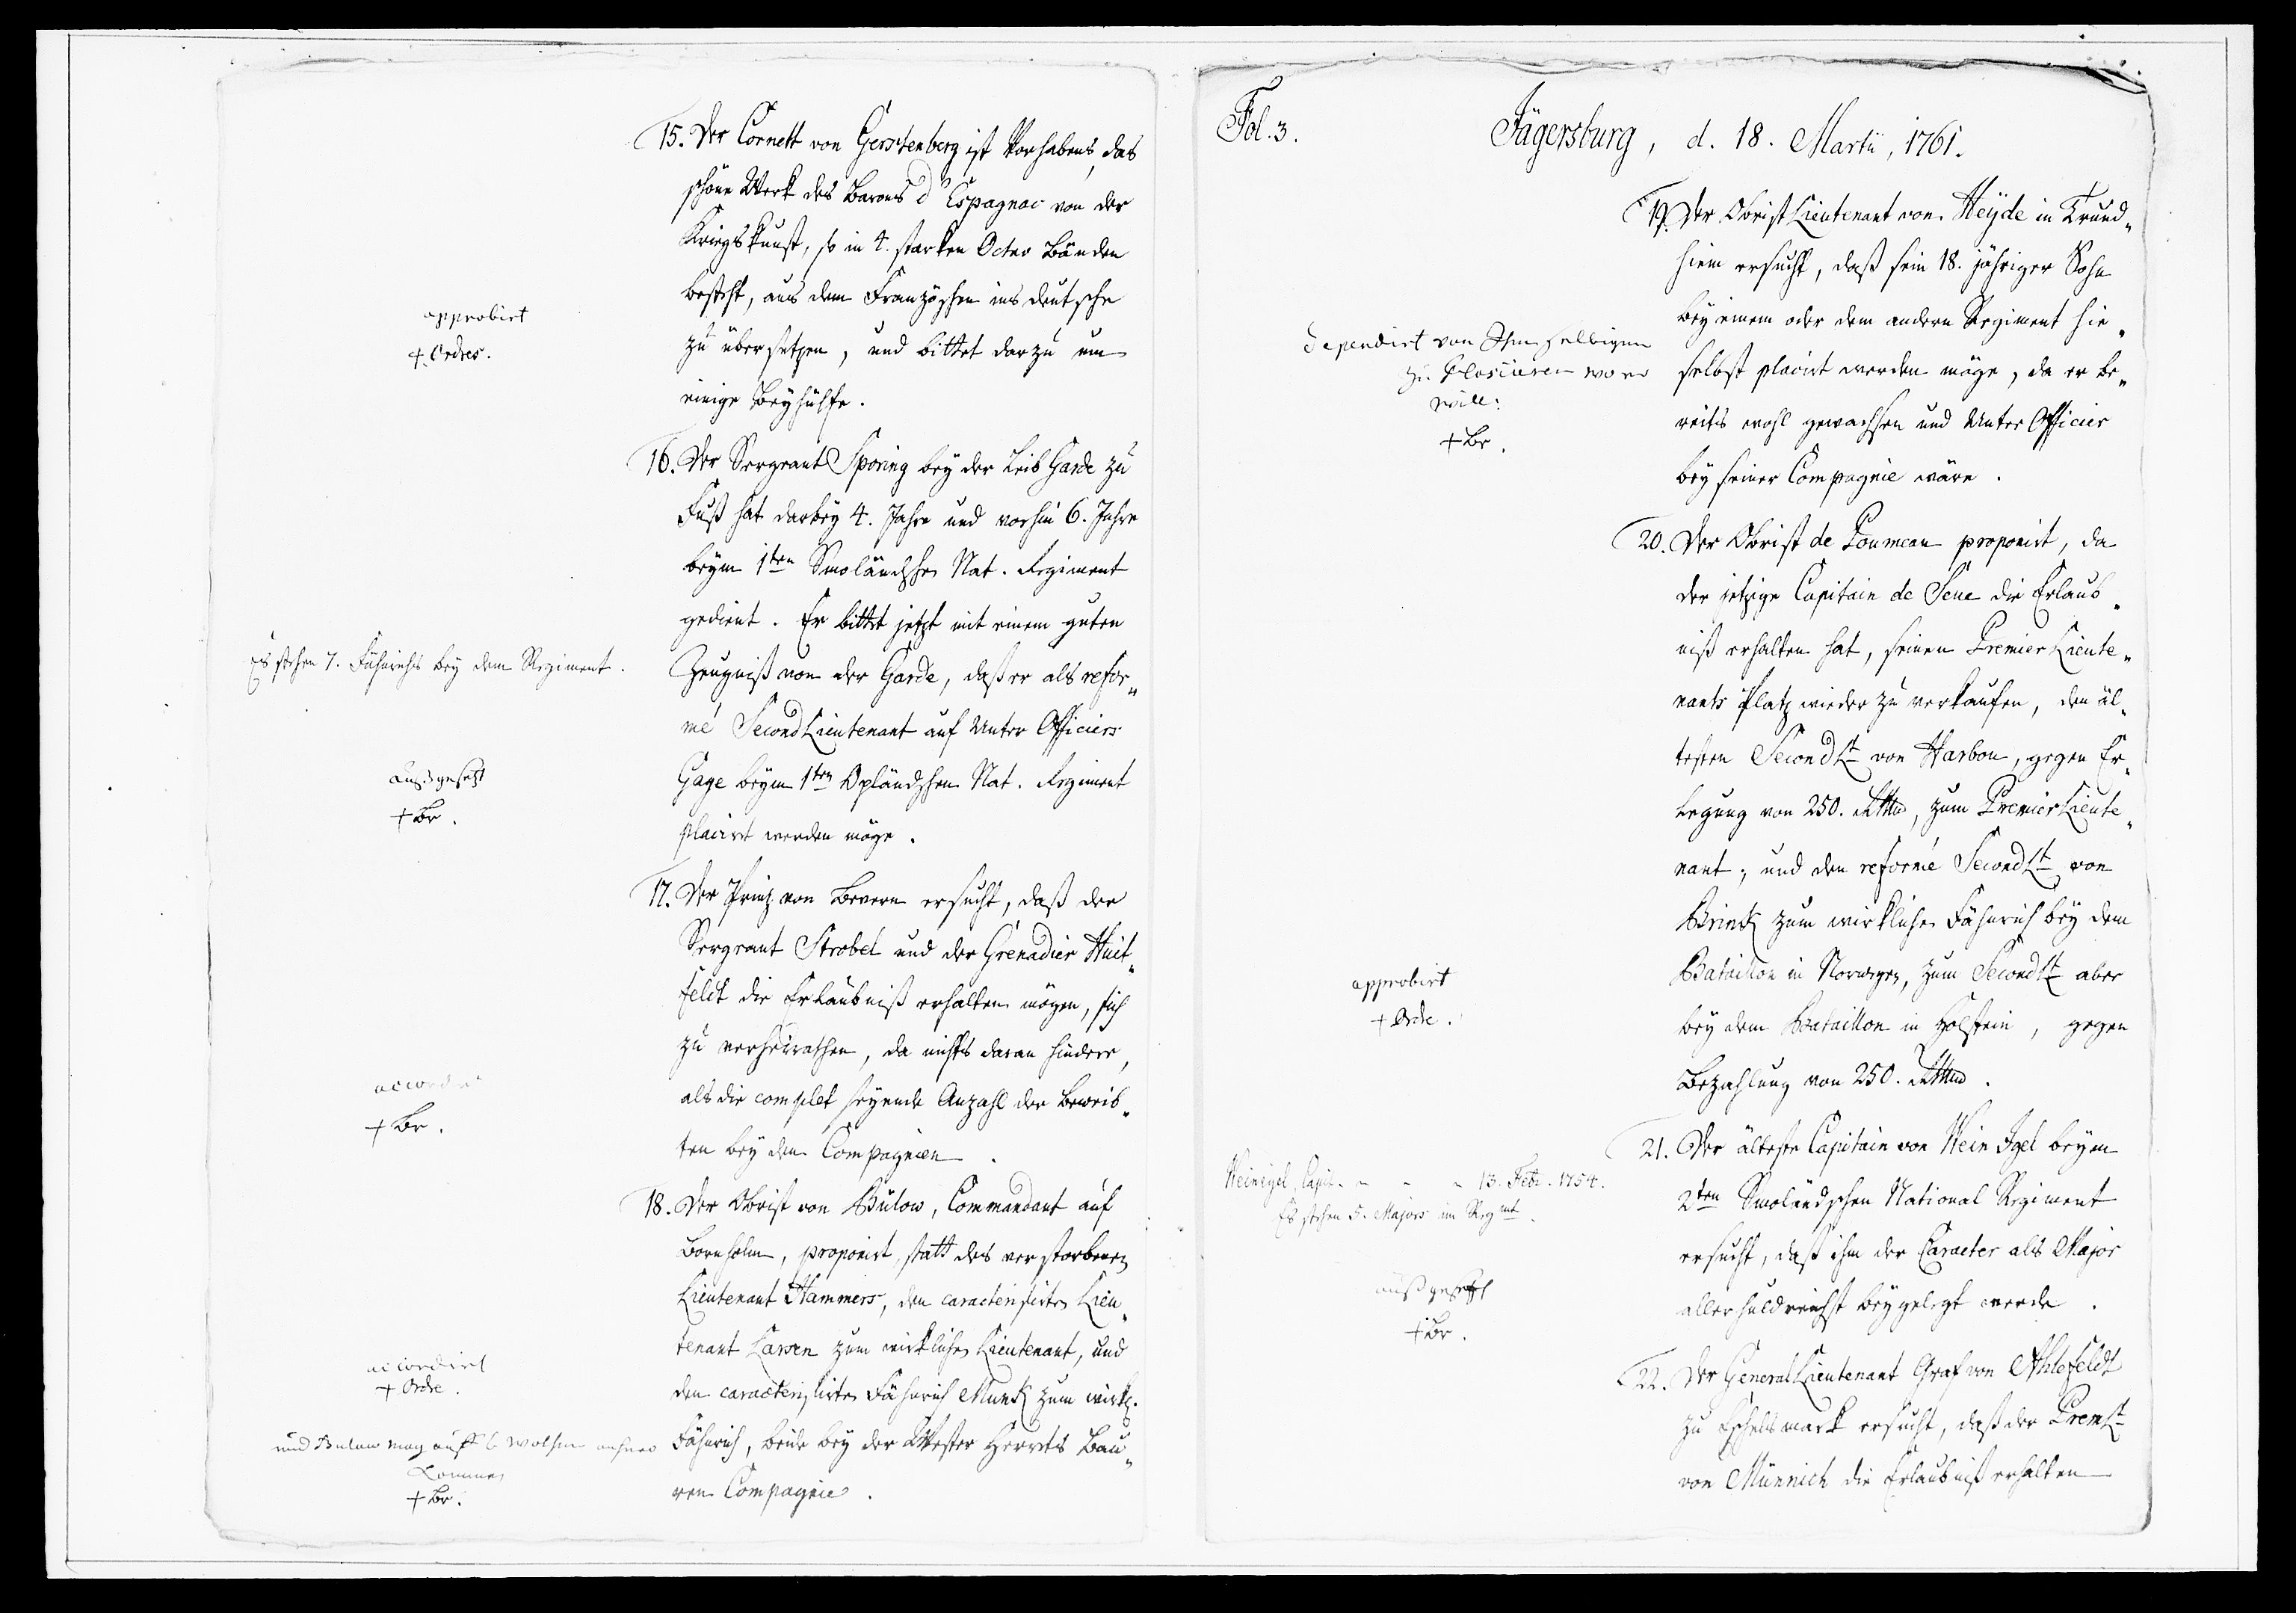 15. Der Cornett von Gerstenberg ist Vorhabens, das
schöne Werk des Barons d'Espagnac von der
Kriegskunst, so in 4. starken Octav Bänden
besteht, aus dem Französchen ins deutsche
approbirt
zu übersetzen, und bittet darzu um
+ Ordres.
einige Beyhülffe.
16. Der Sergeant Sporing bey der Leib Garde zu
Fuß hat darbey 4. Jahre und vorhin 6. Jahre
beym 1ten Smoländschen Nat. Regiment
gedient. Er bittet jetzt mit einem guten
Es stehen 7. Fähnrichs bey dem Regiment.
Zeugniß von der Garde, daß er als refor„
mé SecondLieutenant auf Unter Officiers
ausgesetzt
Gage beym 1ten Opländschen Nat. Regiment
+ Br.
placirt werden möge.
17. Der Printz von Bevern ersucht, daß der
Sergeant Strobel und der Grenadier Huit„
feldt die Erlaubniß erhalten mögen, sich
zu verheirathen, da nichts daran hindere,
accordirt
als die complet seyende Anzahl der Beweib„
+ Br.
ten bey den Compagnien.
18. Der Obrist von Bülow, Commandant auf
Bornholm, proponirt, statt des verstorbenen
Lieutenant Hammers, den caracterisirten Lieu„
tenant Larsen zum wirklichen Lieutenant, und
accordirt
+ Ordre.
den caracterisirten Fähnrich Munk zum wirkl.
und Bulow mag auff 6 wochen anhero
Kommen
+ Br.
Fähnrich, beide bey der Wester Herrets Bau„
ren Compagnie.
Fol. 3.
Jägersburg, d. 18. Martii, 1761.
19. Der ObristLieutenant von Heyde in Trund„
hiem ersucht, daß sein 18. jähriger Sohn
bey einem oder dem andern Regiment hie„
dependirt von Ihm selbigen
zu Plasiren wo er
will:
+ Br.
selbst placirt werden möge, da er be„
reits wohl gewachsen und Unter Officier
bey seiner Compagnie wäre.
20. Der Obrist de Poumeau proponirt, da
der jetzige Capitain de Seue die Erlaub„
niß erhalten hat, seinen PremierLieute„
nants Platz wieder zu verkaufen, den äl„
testen SecondLt von Harbou, gegen Er„
legung von 250. Rthlr, zum PremierLieute„
nant; und den reformé SecondLt von
Brink zum wirklichen Fähnrich bey dem
Bataillon in Norwegen, zum SecondLt aber
approbirt
+ Ordre.
bey dem Bataillon in Holstein, gegen
Bezahlung von 250. Rthlr.
21. Der älteste Capitain von Wein Igel beym
Weinigel, Capit. - - - 13. Febr. 1754.
Es stehen 5. Majors im Regmt.
2ten Smoländschen National Regiment
ersucht, daß ihm der Caracter als Major
außgesetzt
+ Br.
allerhuldreichst beygelegt werde.
22. Der GeneralLieutenant Graf von Ahlefeldt
zu Eschelsmark ersucht, daß der PremLt
von Münnich die Erlaubniß erhalten